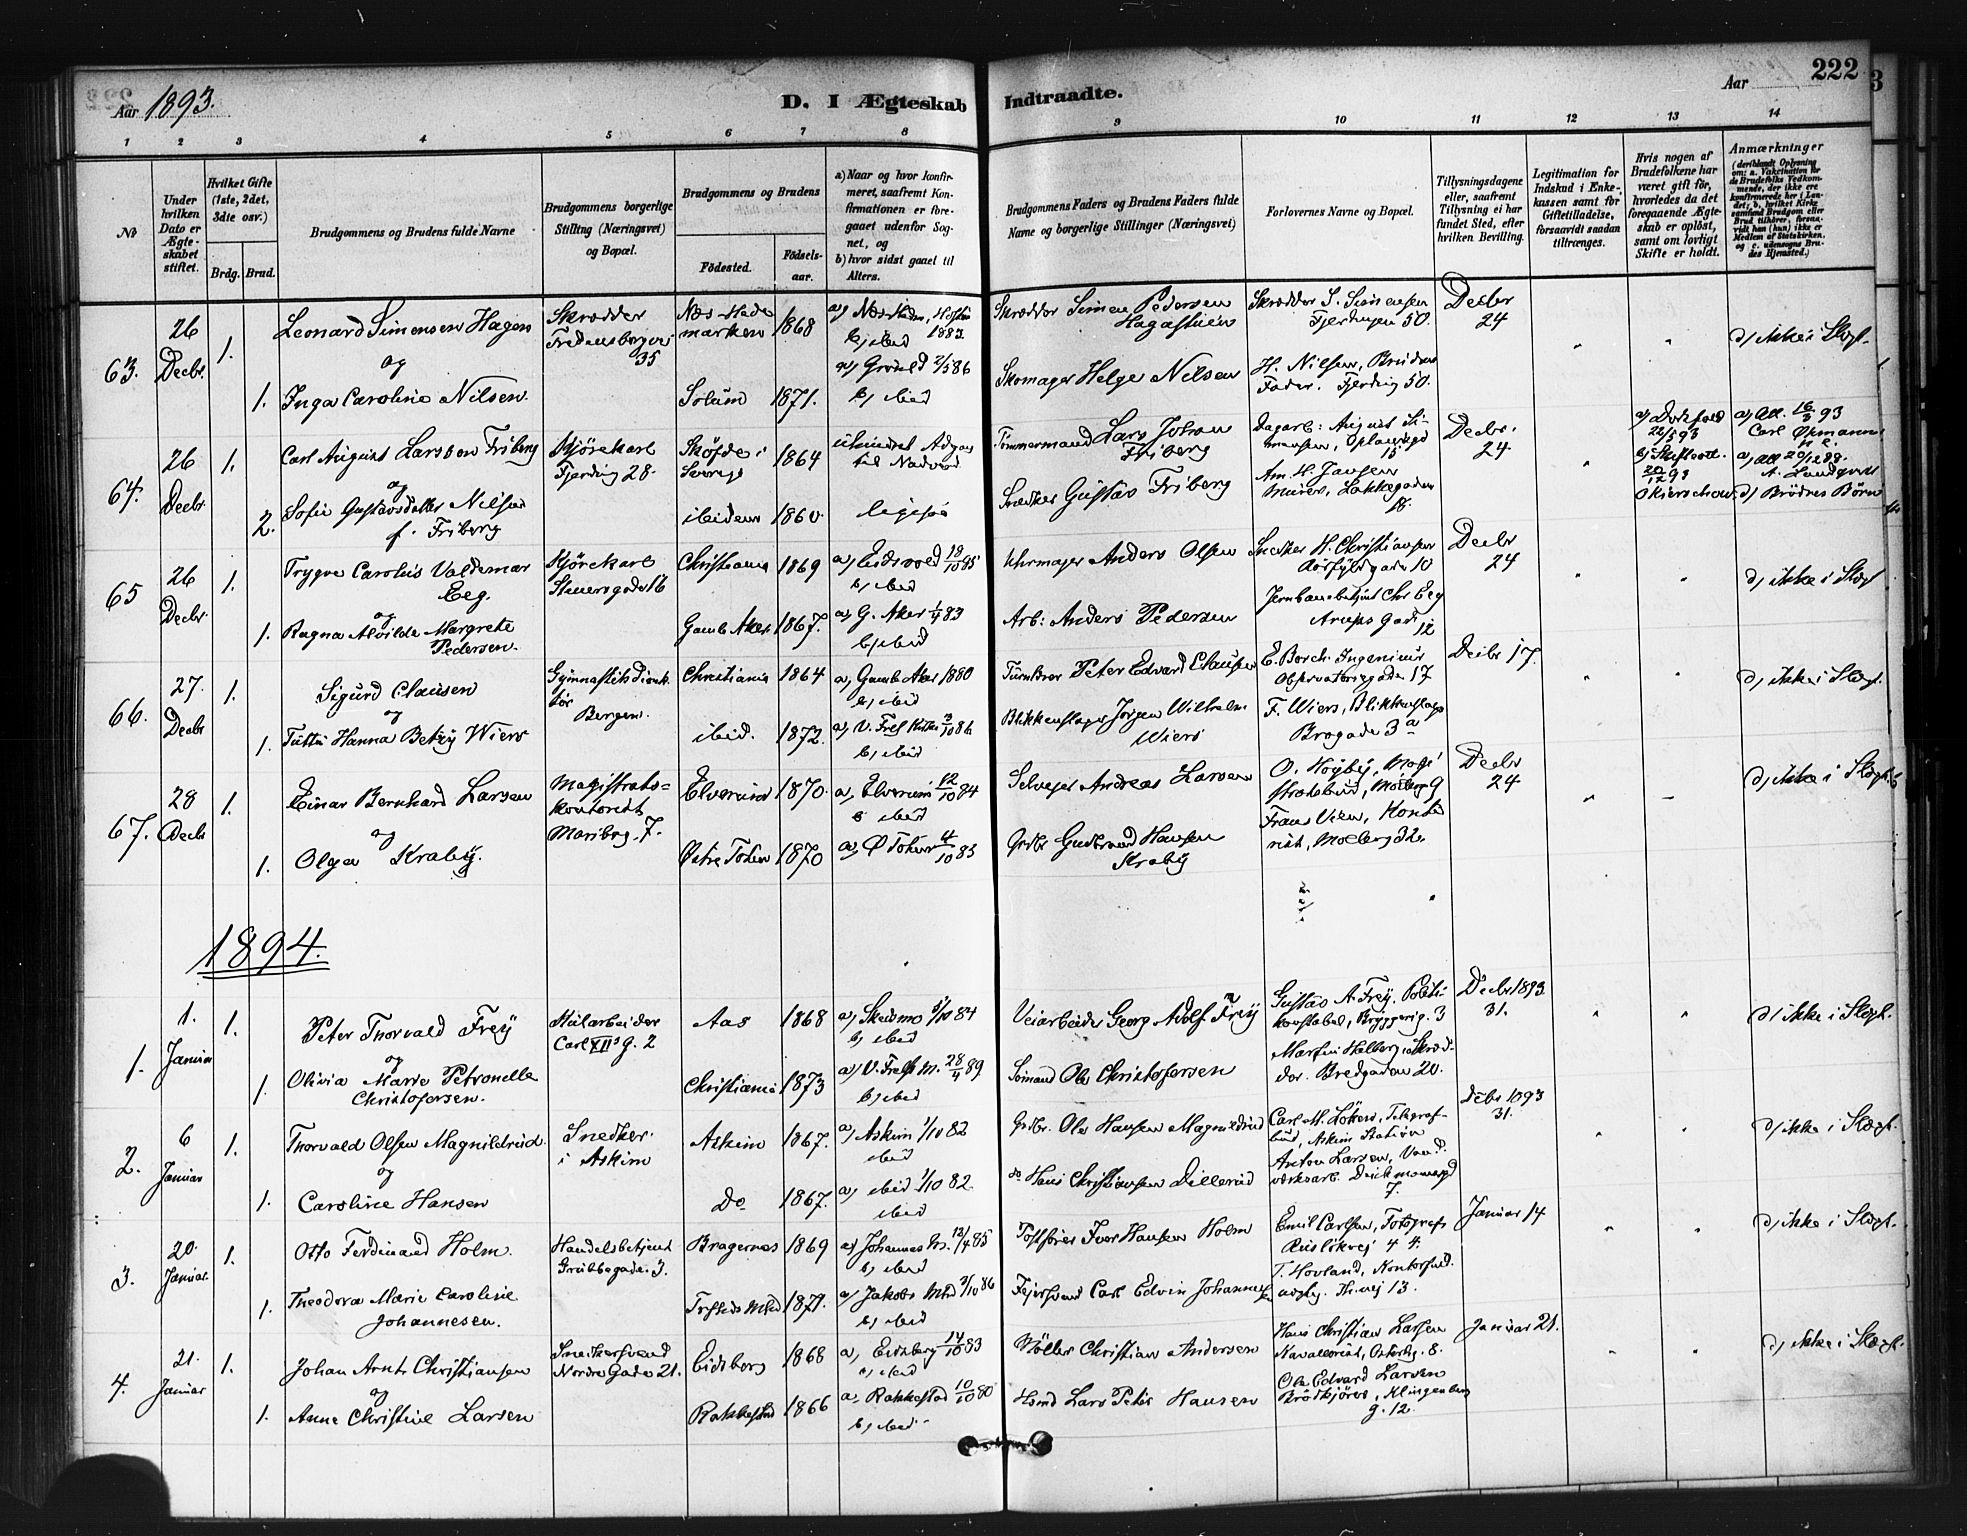 Aar 1893.
D. I Ægteskab Indtraadte.
Aar
222
1 2 3 4 5 6 7 8 9 10 11 12 13 14
No
Under hvilken Dato er Ægteskabet stiftet.
Hvilket Gifte (1ste, 2det, 3die osv.)
Brdg. Brud.
Brudgommens og Brudens fulde Navne
Brudgommens borgerlige Stilling (Næringsvei) og Bopæl.
Brudgommens og Brudens
Födested.
Födselsaar.
a) Naar og hvor konfirmeret, saafremt Konfirmationen er foregaaet udenfor Sognet, og
b) hvor sidst gaaet til Alters.
Brudgommens Faders og Brudens Faders fulde Navne og borgerlige Stillinger (Næringsvei)
Forlovernes Navne og Bopæl.
Tillysningsdagene eller, saafremt Tillysning ei har fundet Sted, efter hvilken Bevilling.
Legitimation for Indskud i Enkekassen samt for Giftetilladelse, forsaavidt saadan tiltrænges.
Hvis nogen af Brudefolkene har været gift för, hvorledes da det foregaaende Ægteskab er oplöst, samt om lovligt Skifte er holdt.
Anmærkninger
63. 26 Decbr. 1.
Leonard Simensen Hagen
Skrædder
Fredensborgvei 35
Næs Hedemarken 1868
b) ibid 1883
Skrædder Simen Pedersen Hagastuen
Skrædder S. Simensen Fjerdingen 50.
Decbr 24
d) ikke i Slægt.
og
1. Inga Caroline Nilsen.
Solum 1871.
b) ibid
Skomager Helge Nilsen
H. Nilsen, Brudens Fader. Fjerding 50.
64. 26 Decbr. 1.
Carl August Larsson Friberg
Kjörekarl
Fjerding 28.
Sköfde i Sverige 1864
Tömmermand Lars Johan Friberg
Decbr. 24.
og
2. Sofie Gustavsdatter Nilsen f. Friberg
ibidem 1860.
ligesaa
Snedker Gustav Friberg
d) Brödres Börn
65 26 Decbr. 1.
Trygve Carolus Valdemar Eeg.
Kjörekarl
Steensgade 16
Christiania 1869
a) Eidsvold 18/10 85
b) ibid
Uhrmager Anders Olsen
Snedker H. Christiansen
Decbr 24
d) ikke i Slægt
og
1. Ragna Alvilde Margrete Pedersen.
Gamle Aker. 1867.
a) G. Aker 1/4 83
b) ibid
Arb: Anders Pedersen
Jernbanebetjent Chr Eeg
Arups Gade 12
66. 27. Decbr 1.
Sigurd Clausen
Bergen.
Christiania 1864
a) Gamle Aker 1880
b) ibid
Peter Edvard Clausen
E. Borch. Ingeniör
Observatoriegaden 17
Decbr 17.
d) ikke i Slægt.
og
1. Tutti Hanna Betzy Wiers
ibid. 1872.
b) ibid
Blikkenslager Jörgen Wilhelm Wiers
F. Wiers, Blikkenslager
Brogade 3 a
67. 28 Decbr 1.
Einar Bernhard Larsen
Magistratskontorist
Maribog. 7.
Elverum 1870.
a) Elverum 12/10 84
b ibid
Selveier Andreas Larsen
Decbr 24
d) ikke i Slægt.
og
1. Olga Kraby.
Østre Toten 1870
a) Ø Toten 4/10 85
Grdbr Gudbrand Hansen Kraby
1894.
1. 1. Januar 1.
Peter Thorvald Frey
Carl XIIs G. 2
Aas 1868
a) Skedsmo 5/10 84
b) ibid
Veiarbeider Georg Adolf Frey
Gustav A. Frey. Politikonstabel, Bryggerig. 3
Decbr 1893 31.
d) ikke i Slægt.
og
1. Olivia Marie Petronelle Christofersen.
Christiania 1873
a) V. Frels M. 28/4 89
b) ibid
Sömand Ole Christofersen
Bredgaden 20.
2. 6 Januar 1.
Thorvald Olsen Magnildrud.
Snedker i Askim
Askim 1867.
a) Askim 1/10 82
ibid
Grdbr. Ole Hansen Magnildrud
Askim Station
Decbr 1893 31.
d) ikke i Slægt.
og
1. Caroline Hansen
Do 1867.
a) ibid 1/10 82
ibid
do Hans Christiansen Dillerud
Anton Larsen,
7.
3. 20. Januar. 1.
Otto Ferdinand Holm.
Handelsbetjent
Grubbegade. 3.
Bragernes 1869
a) Johannes M. 12/4 85
b) ibid
Postförer Iver Hansen Holm
Emil Carlsen, Fotograf
Januar 14
d) ikke i Slægt.
1. Theodora Marie Caroline Johannesen.
1871.
a) Jakobs Mhd 3/10 86
b) ibid
Feiersvend Carl Edvin Johannesen
T. Hovland,
4. 21. Januar 1.
Johan Arnt Christiansen
Snedkersvend
Nordre Gade 21.
Eidsberg 1868
a) Eidsberg 14/10 83
b) ibid
Möller Christian Andersen
Hans Christian Larsen
Januar 21.
d) ikke i Slægt.
og
1. Anne Christine Larsen
Rakkestad 1866
a) Rakkestad 10/10 80
b) ibid
Hsmd Lars Peter Hansen
Ole Edvard Larsen
Brödkjörer, Klingenberg g. 12.